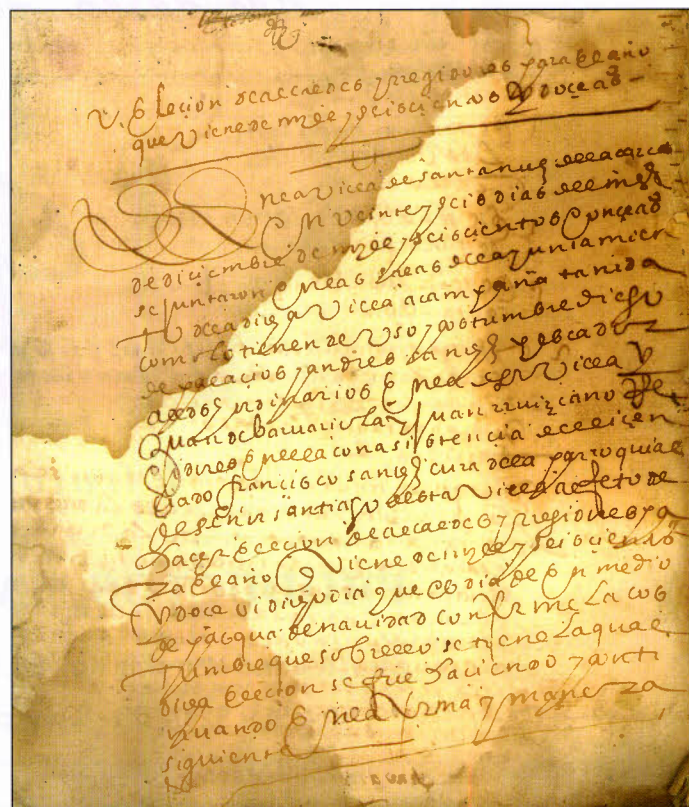 Elecion de alcaldes y rregidores para el año
que viene de mill y seiscientos y doce aos
En la villa de santa cruz de la çarça
En veinte y seis dias del mes
de diciembre de mill y seiscientos y once aos
se juntaron en las salas de el ayuntamien
to de la dicha villa a campana tanida
como lo tienen de uso y costumbre diego
de palacios y andres sanchez pescador
alcdes hordinarios en la dha villa y
Juan de Juan rruiz cano Re
gidores en ella con asistencia de el licen
ciado francisco sanchez cura de la parroquial
de señor santiago desta villa a efeto de
hacer elecion de alcaldes y rregidores pa
ra el año que viene de mill y seiscientos
y doce oi dia que es dia de en medio
de pasqua de navidad conforme la cos
tumbre que sobre ello se tiene la qual
dicha elecion se fue haciendo y conti
nuando en la forma y manera
siguiente